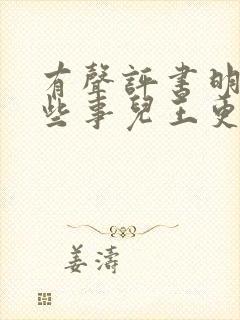 有聲評書明
些事兒王更
姜濤